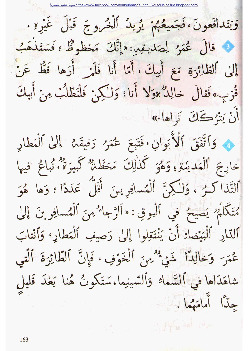 وَيَتَدَافَعُونَ، فَجَمِيعُهُمْ يُرِيدُ الْخُرُوجَ قَبْلَ غَيْرِهِ.
قَالَ عُمَرُ لِصَدِيقِهِ: «إِنَّكَ مَحْظُوظٌ، فَسَتَذْهَبُ
إِلَى الطَّائِرَةِ مَعَ أَبِيكَ، أَمَّا أَنَا فَلَمْ أَرَهَا قَطُّ عَنْ
قُرْبٍ» فَقَالَ خَالِدٌ: «وَلَا أَنَا، وَلَكِنْ فَلْنَطْلُبْ مِنْ أَبِيكَ
أَنْ يَتْرُكَكَ تَرَاهَا.»
وَاتَّفَقَ الْأَبَوَانِ، فَتَبِعَ عُمَرُ رَفِيقَهُ إِلَى الْمَطَارِ
خَارِجَ الْمَدِينَةِ، وَهُوَ كَذَلِكَ مَحَطَّةٌ كَبِيرَةٌ، تُبَاعُ فِيهَا
التَّذَاكِرُ، وَلَكِنَّ الْمُسَافِرِينَ أَقَلُّ عَدَدًا، وَهَا هُوَ
مُتَكَلِّمٌ يَصِيحُ فِي الْبُوقِ: «الرَّجَاءُ مِنَ الْمُسَافِرِينَ إِلَى
الدَّارِ الْبَيْضَاءِ، أَنْ يَنْتَقِلُوا إِلَى رَصِيفِ الْمَطَارِ، وَانْتَابَ
عُمَرَ وَخَالِدًا شَيْءٌ مِنَ الْخَوْفِ، فَإِنَّ الطَّائِرَةَ الَّتِي
شَاهَدَاهَا فِي السَّمَاءِ وَالسِّينِمَا، سَتَكُونُ هُنَا بَعْدَ قَلِيلٍ
جِدًّا أَمَامَهُمَا.